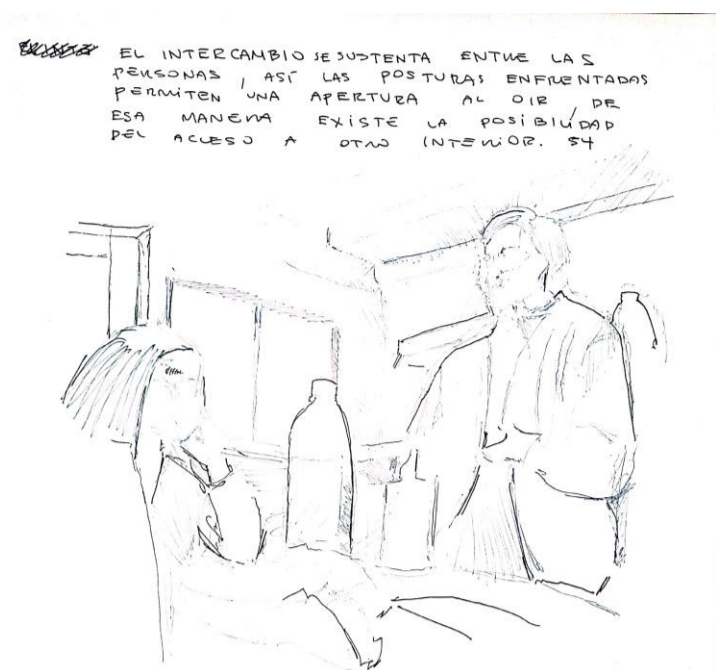 EL INTERCAMBIO SE SUSTENTA ENTRE LAS
PERSONAS, ASÍ LAS POSTURAS ENFRENTADAS
PERMITEN UNA APERTURA AL OIR, DE
ESA MANERA EXISTE LA POSIBILIDAD
DEL ACCESO A OTRO INTERIOR. 54